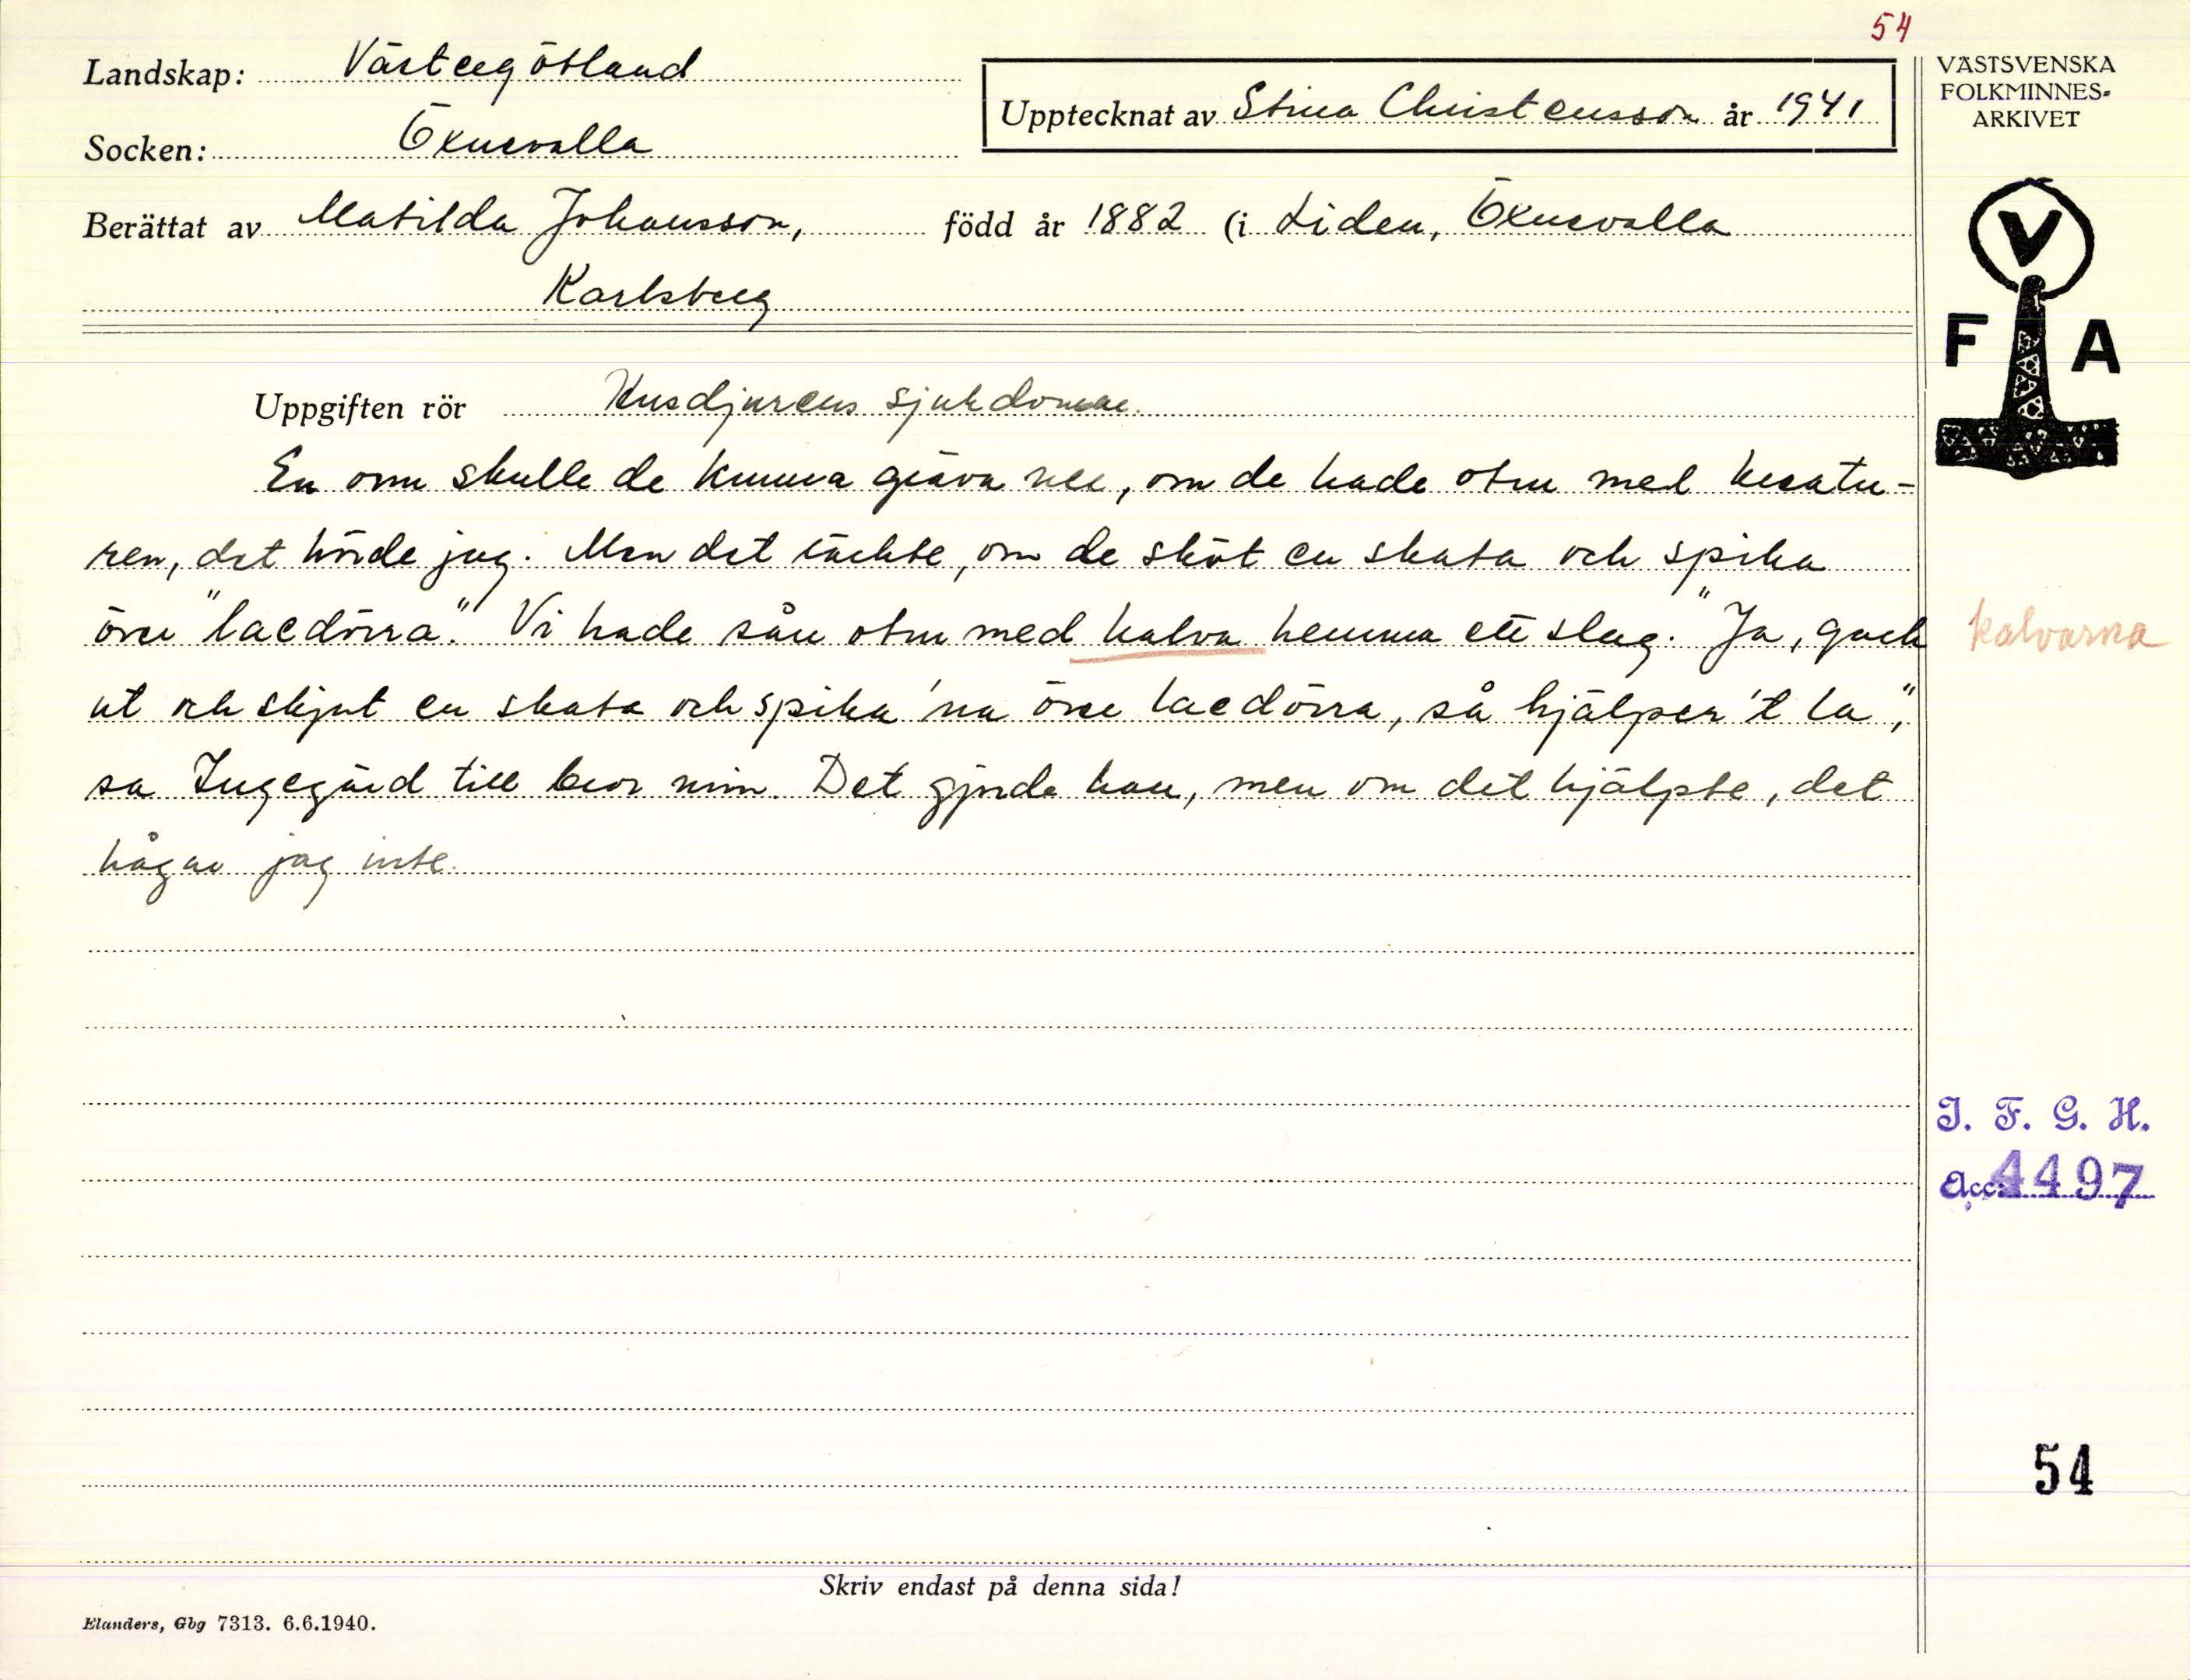 54
Landskap: Västergötland
Socken: Öxnevalla
Upptecknat av Stina Christensson år 1941
Berättat av Matilda Johansson, född år 1882 (i Liden, Öxnevalla
Karlsberg
VÄSTSVENSKA
FOLKMINNES-
ARKIVET
V
F A
Uppgiften rör Husdjurens sjukdomar.
En orm skulle de kunna gräva ner, om de hade otur med kreatu-
ren, det hörde jag. Men det räckte, om de sköt en skata och spika
över "laedörra". Vi hade sån otur med kalva hemma ett slag. "Ja, gack
kalvarna
ut och skjut en skata och spika 'na över laedörra, så hjälper 't la",
sa Ingegärd till bror min. Det gjorde han, men om det hjälpte, det
hågar jag inte.
I. F. G. H.
Acc. 4497
54
Skriv endast på denna sida!
Elanders, Gbg 7313. 6.6.1940.